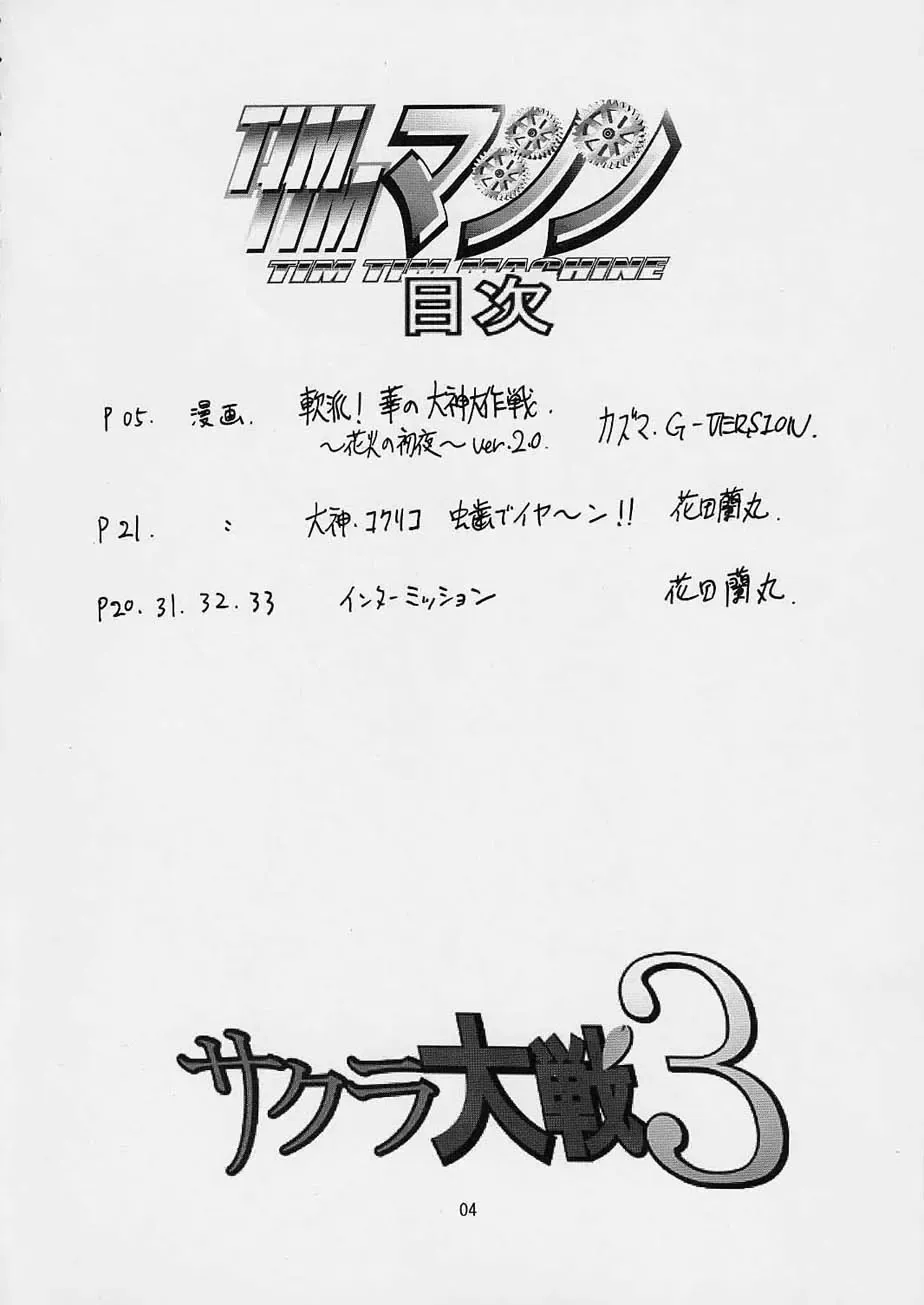 TIM
TIM マシン
TIM TIM MACHINE
目次
P 05. 漫画. 軟派! 華の大神大作戦. カズマ. G-VERSION.
～花火の初夜～ ver.2.0
P 21. : 大神・コクリコ 虫歯でイヤ～ン!! 花田蘭丸.
P20. 31. 32. 33 インターミッション 花田蘭丸.
サクラ大戦3
04